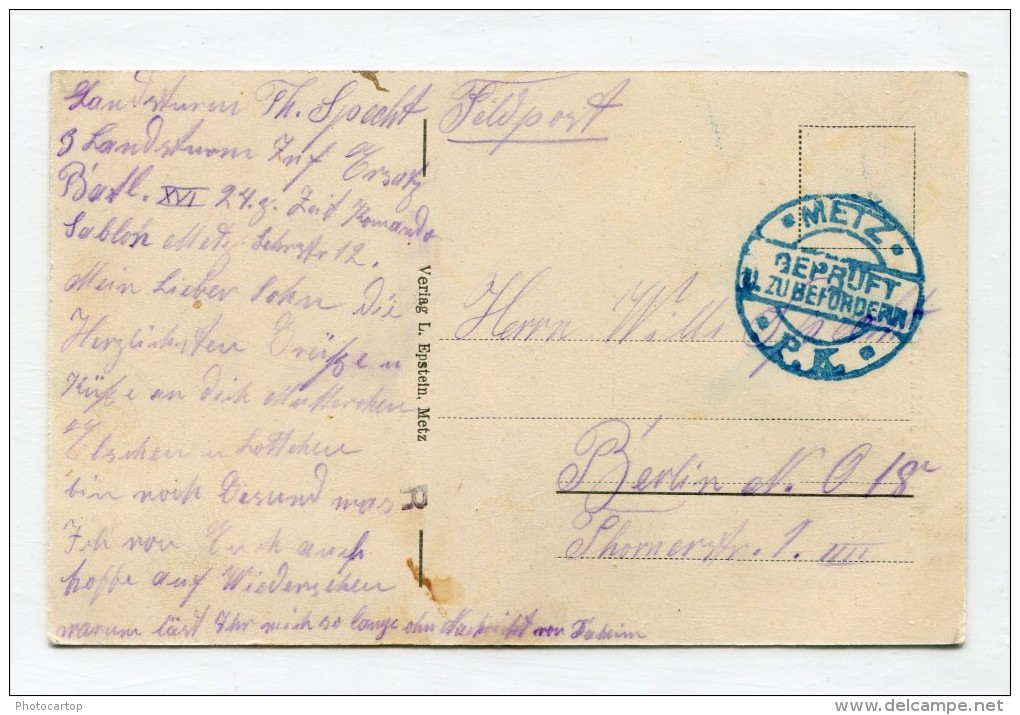 Landsturm Th. Specht
3 Landsturm Inf Ersatz
Batl. XVI 24. z. Zeit Komando
Sablon Metz Lehrstr 12.
Mein Lieber Sohn die
Herzlichsten Grüße u
Küße an dich Mutterchen
Elschen u Lottchen
bin noch Gesund was
Ich von Euch auch
hoffe auf Wiedersehen
warum läst Ihr mich so lange ohn Nachricht von Daheim
Feldpost
METZ
GEPRÜFT
U. ZU BEFÖRDERN
P.K.
Herrn Willi Specht
Berlin N. O 18
Thornerstr. 1. IIII
Verlag L. Epstein, Metz
R
Photocartop
delcampe.net